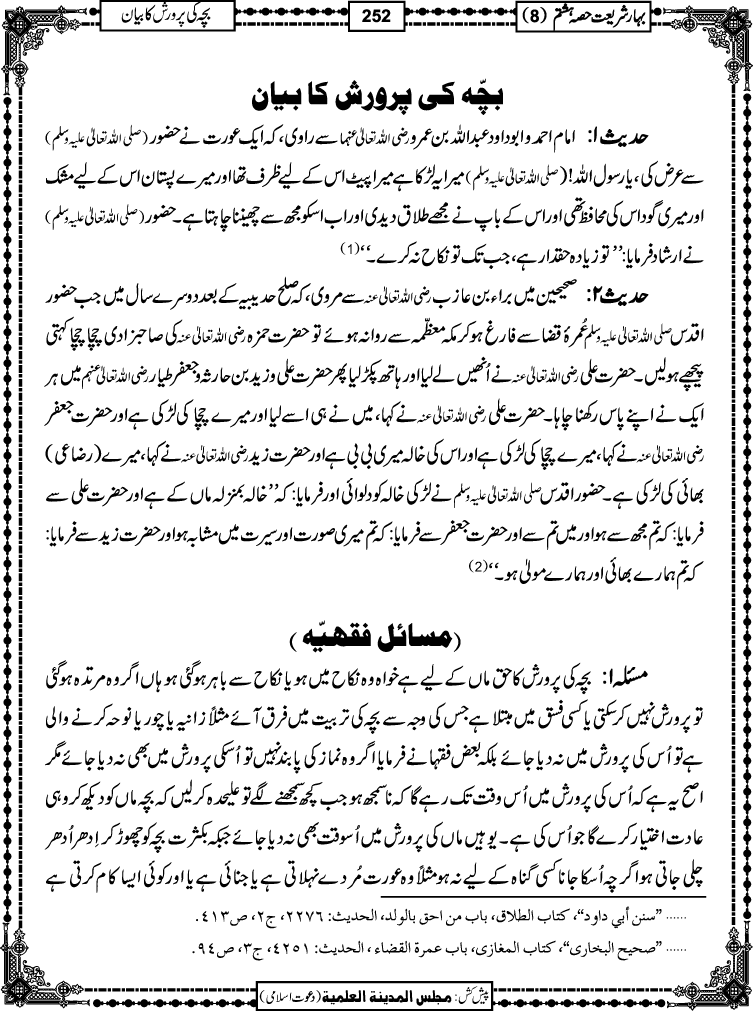 بہارِ شریعت حصہ ہشتم (8)
252
بچہ کی پرورش کا بیان
بچّہ کی پرورش کا بیان
حدیث ۱: امام احمد و ابو داود عبداللہ بن عمرو رضی اللہ تعالیٰ عنہما سے راوی، کہ ایک عورت نے حضور (صلی اللہ تعالیٰ علیہ وسلم)
سے عرض کی، یارسول اللہ! (صلی اللہ تعالیٰ علیہ وسلم) میرا یہ لڑکا ہے میرا پیٹ اس کے لیے ظرف تھا اور میرے پستان اس کے لیے مشک
اور میری گود اس کی محافظ تھی اور اس کے باپ نے مجھے طلاق دیدی اور اب اسکو مجھ سے چھیننا چاہتا ہے۔ حضور (صلی اللہ تعالیٰ علیہ وسلم)
نے ارشاد فرمایا: ’’ تو زیادہ حقدار ہے، جب تک تو نکاح نہ کرے۔‘‘ (1)
حدیث ۲: صحیحین میں براء بن عازب رضی اللہ تعالیٰ عنہ سے مروی، کہ صلح حدیبیہ کے بعد دوسرے سال میں جب حضور
اقدس صلی اللہ تعالیٰ علیہ وسلم عُمرۂ قضا سے فارغ ہو کر مکہ معظّمہ سے روانہ ہوئے تو حضرت حمزہ رضی اللہ تعالیٰ عنہ کی صاحبزادی چچا چچا کہتی
پیچھے ہولیں۔ حضرت علی رضی اللہ تعالیٰ عنہ نے اُنھیں لے لیا اور ہاتھ پکڑ لیا پھر حضرت علی و زید بن حارثہ و جعفر طیار رضی اللہ تعالیٰ عنہم میں ہر
ایک نے اپنے پاس رکھنا چاہا۔ حضرت علی رضی اللہ تعالیٰ عنہ نے کہا، میں نے ہی اسے لیا اور میرے چچا کی لڑکی ہے اور حضرت جعفر
رضی اللہ تعالیٰ عنہ نے کہا، میرے چچا کی لڑکی ہے اور اس کی خالہ میری بی بی ہے اور حضرت زید رضی اللہ تعالیٰ عنہ نے کہا، میرے (رضاعی)
بھائی کی لڑکی ہے۔ حضور اقدس صلی اللہ تعالیٰ علیہ وسلم نے لڑکی خالہ کو دلوائی اور فرمایا: کہ ’’خالہ بمنزلہ ماں کے ہے اور حضرت علی سے
فرمایا: کہ تم مجھ سے ہو اور میں تم سے اور حضرت جعفر سے فرمایا: کہ تم میری صورت اور سیرت میں مشابہ ہو اور حضرت زید سے فرمایا:
کہ تم ہمارے بھائی اور ہمارے مولیٰ ہو۔‘‘ (2)
(مسائل فقهيّه)
مسئلہ ۱: بچہ کی پرورش کا حق ماں کے لیے ہے خواہ وہ نکاح میں ہو یا نکاح سے باہر ہو گئی ہو ہاں اگر وہ مرتدہ ہو گئی
تو پرورش نہیں کر سکتی یا کسی فسق میں مبتلا ہے جس کی وجہ سے بچہ کی تربیت میں فرق آئے مثلاً زانیہ یا چور یا نوحہ کرنے والی
ہے تو اُس کی پرورش میں نہ دیا جائے بلکہ بعض فقہا نے فرمایا اگر وہ نماز کی پابند نہیں تو اُسکی پرورش میں بھی نہ دیا جائے مگر
اصح یہ ہے کہ اُس کی پرورش میں اُس وقت تک رہے گا کہ ناسمجھ ہو جب کچھ سمجھنے لگے تو علیحدہ کر لیں کہ بچہ ماں کو دیکھ کر وہی
عادت اختیار کرے گا جو اُس کی ہے۔ یوہیں ماں کی پرورش میں اُسوقت بھی نہ دیا جائے جبکہ بکثرت بچہ کو چھوڑ کر اِدھر اُدھر
چلی جاتی ہو اگرچہ اُسکا جانا کسی گناہ کے لیے نہ ہو مثلاً وہ عورت مُردے نہلاتی ہے یا جنائی ہے یا اور کوئی ایسا کام کرتی ہے
...... ”سنن أبي داود“، كتاب الطلاق، باب من احق بالولد، الحديث: ٢٢٧٦، ج٢، ص٤١٣.
...... ”صحيح البخاری“، كتاب المغازی، باب عمرة القضاء ، الحديث: ٤٢٥١، ج٣، ص٩٤.
پیش کش: مجلس المدينة العلمية (دعوتِ اسلامی)